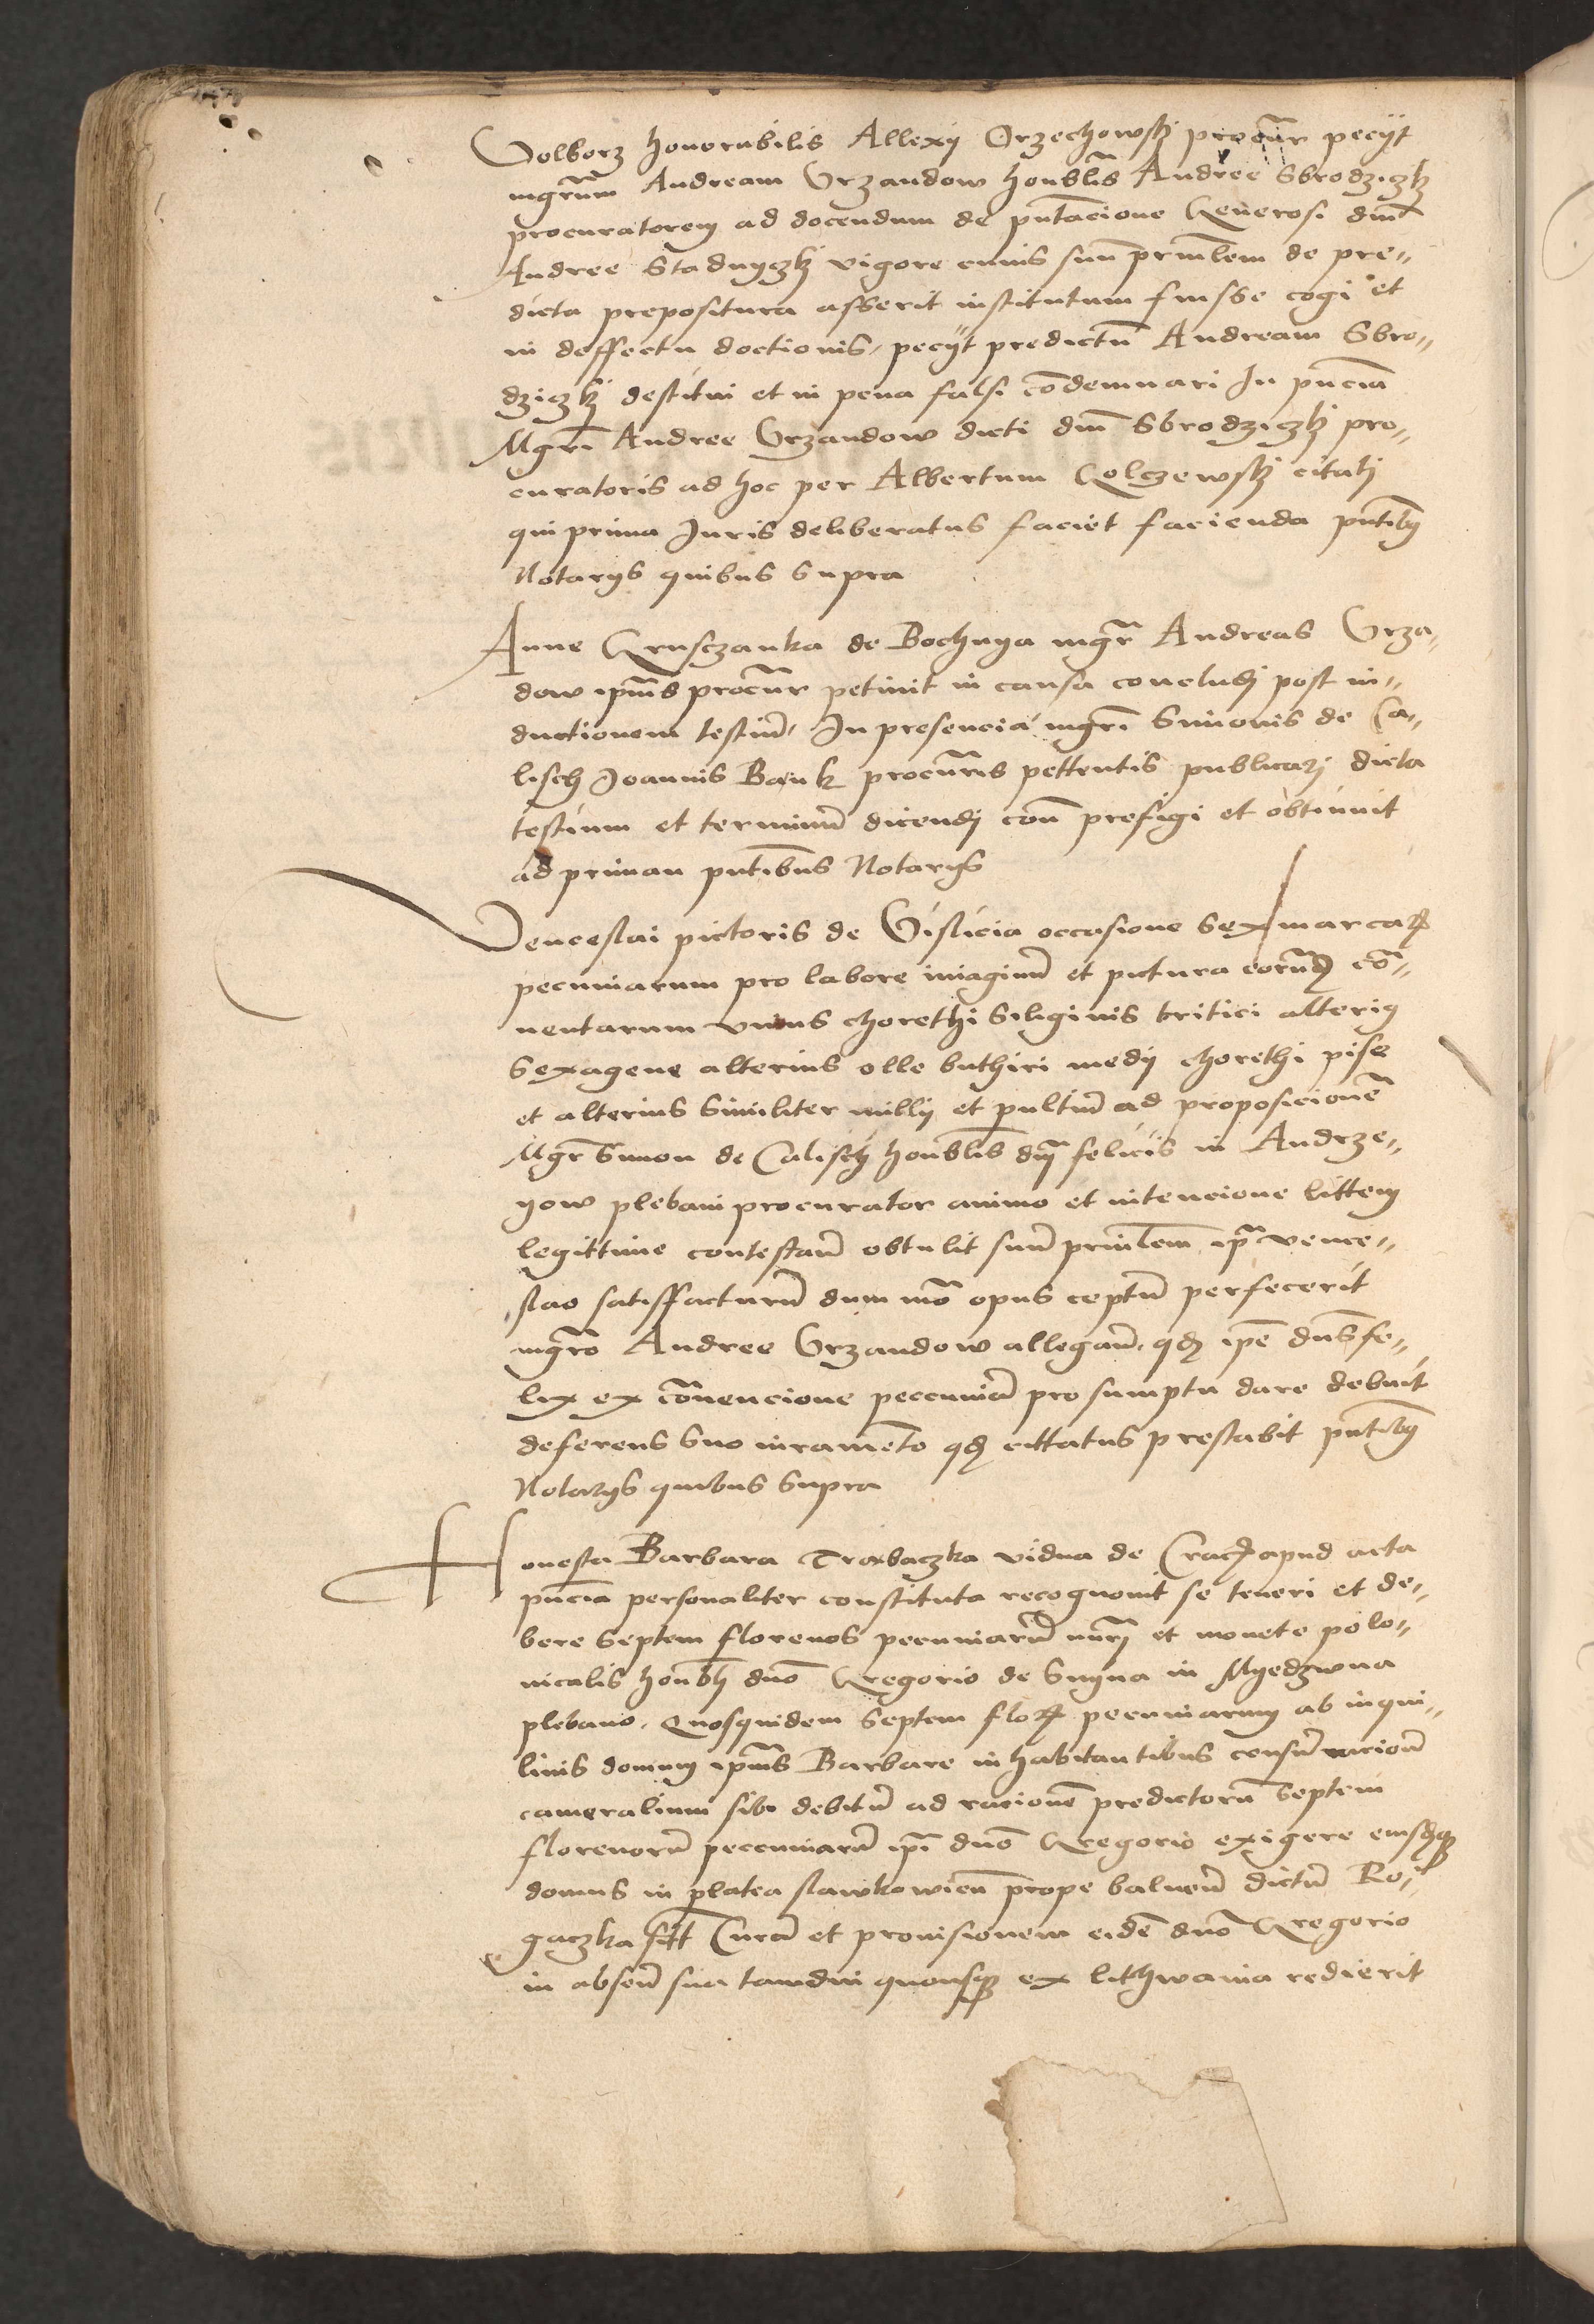 Volborz honorabilis Allexij Orzechowskj procur̄ pecijt
mgr̄um Andream Vrzandow honoblis Andree Sbrodziczkj
procuratorem ad docendum de pn̄tacione Generosi dn̄i
Andree Stadnyczkj vigore cuius suū prn̄lem de pre„
dicta prepositura asserit institutum fuisse cogi et
in deffectu doctionis, pecijt predictū Andream Sbro„
dziczkj destitui et in pena falsi cōdemnari In pn̄cia
Mgrī Andree Vrzandow dicti dn̄i Sbrodziczkj pro„
curatoris ad hoc per Albertum Golczewskj citatj
qui prima Juris deliberatus faciet facienda pn̄tibus
Notarijs quibus supra
Anne Gruszczanka de Bochnya mgr̄ Andreas Vrza„
dow ip̄ius procur̄ petiuit in causa concludj post in„
ductionem testiū, In presencia mgrī Simonis de Ca„
lisch Joannis Bank procur̄is pettentis publicarj dicta
testium et terminū dicendj con̄ prefigi et obtinuit
ad primam pn̄tibus Notarijs
Venceslai pictoris de Vislicia occasione sex marcar̄
pecuniarum pro labore imaginū et pictura eorund̄ cō„
uentarum vnius chorethi siliginis tritici alterius
sexagene alterius olle buthiri medij chorethi pise
et alterius similiter millij et pultiū ad proposicionē
Mgr̄ Simon de Calisch honoblis dn̄j felicis in Andrze„
yow plebani procurator animo et intencione littem
legittime contestan̄ obtulit suū prin̄lem ip̄i vence„
slao satisffacturū dum mō opus ceptū perfecerit
mgrō Andree Vrzandow allegan̄, qd̄ ip̄e dn̄s fe„
lix ex cōuencione peccuniā pro sumptu dare debuit
deferens suo iuramēto qd̄ cittatus prestabit pn̄tibus
Notarijs quibus supra
Honesta Barbara Troxbaczka vidua de Crac̄ apud acta
pn̄cia personaliter constituta recognouit se teneri et de„
bere septem florenos pecuniarū nūrj et monete polo„
nicalis honoblj dn̄o Gregorio de Snyna in Myedzwna
plebano, Quosquidem septem flor̄ pecuniarum ab inqui„
linis domum ip̄ius Barbare inhabitantibus censū racioū
cameralium sibi debitū ad racionē predictorū septem
florenorū peccuniarū ip̄i dn̄o Gregorio exigere eiusdemque
domus in platea slawkowien̄ prope balneū dictū Ro„
gaczka sitt̄ Curā et prouisionem eidē dn̄o Gregorio
in absen̄ sua tamdiu quousque ex lithwania redierit